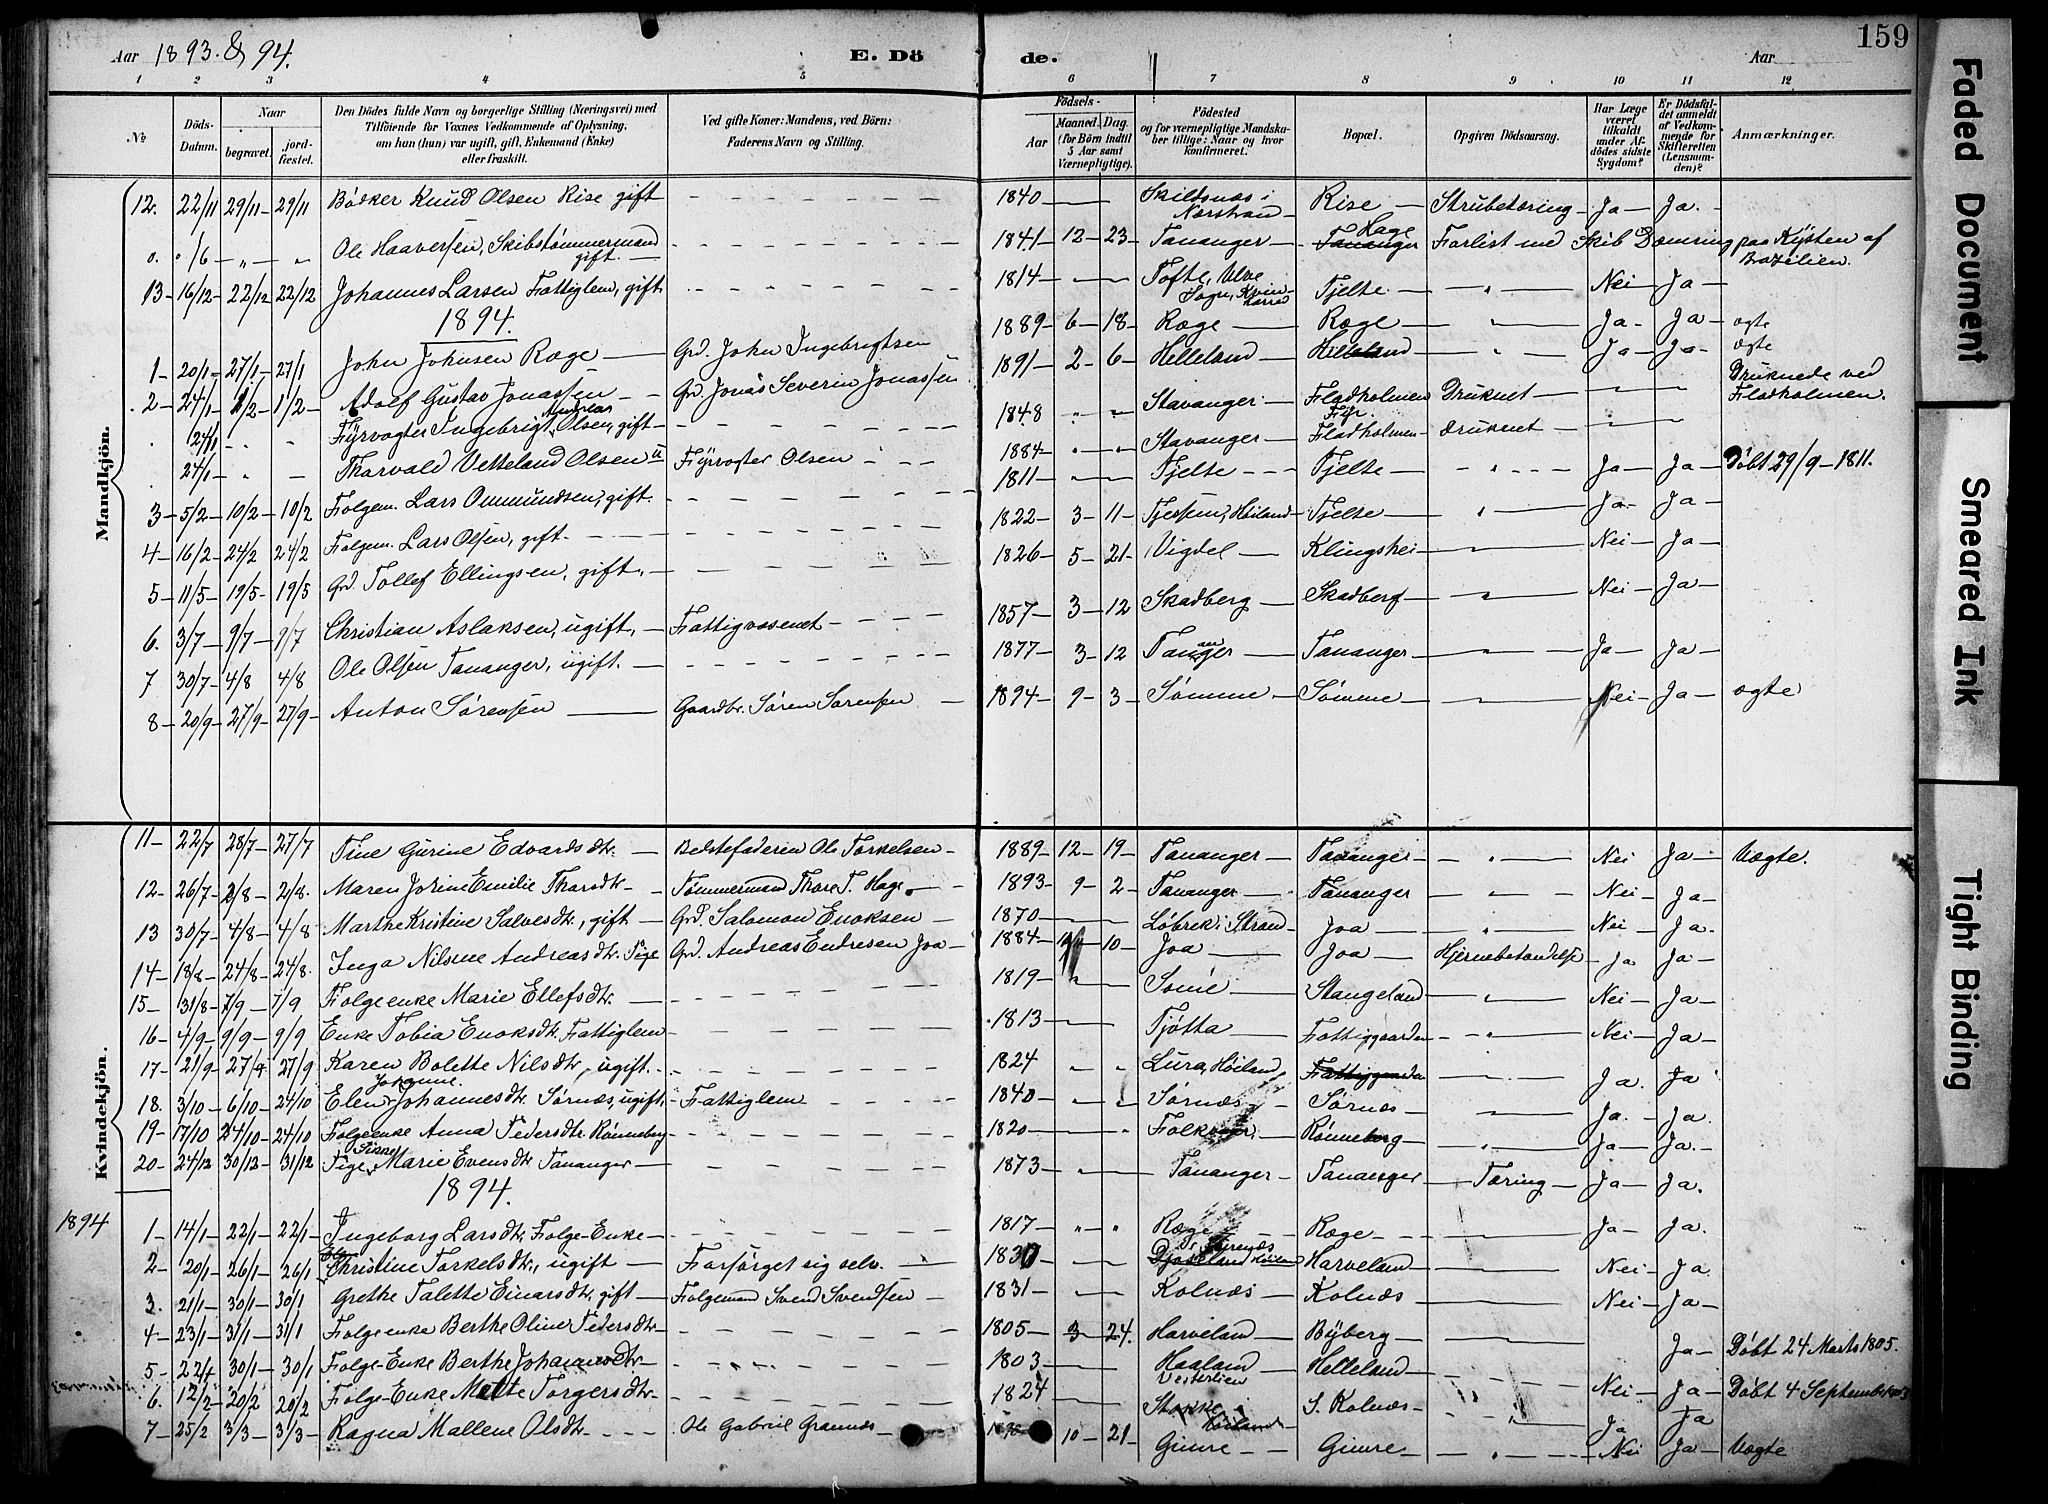 Aar 1893 & 94.
E. Dö
de.
Aar
159
1 2 3 4 5 6 7 8 9 10 11 12
No
Döds-Datum.
Naar
begravet.
jordfæstet.
Den Dödes fulde Navn og borgerlige Stilling (Næringsvei) med
Tilföiende for Voxnes Vedkommende af Oplysning,
om han (hun) var ugift, gift, Enkemand (Enke)
eller fraskilt.
Ved gifte Koner: Mandens, ved Börn:
Faderens Navn og Stilling.
Födsels-
Aar
Maaned. Dag.
(for Börn indtil
5 Aar samt
Værnepligtige).
Födested
og for værnepligtige Mandska-
ber tillige: Naar og hvor
konfirmeret.
Bopæl.
Opgiven Dödsaarsag.
Har Læge
været
tilkaldt
under Af-
dödes sidste
Sygdom?
Er Dödsfal-
det anmeldt
af Vedkom-
mende for
Skifteretten
(Lensman-
den)?
Anmærkninger.
Mandkjön.
12. 22/11 29/11 29/11 Bödker Knud Olsen Rise gift 1840 Skildsnæs i Nærstran Rise Strubetæring Ja Ja.
0. /6 " " Ole Haaversen, Skibstømmermand gift. 1841 12 23 Tananger Tananger Hage Forlist med Skib Dæmring paa Kysten af Brazilien.
13 16/12 22/12 22/12 Johannes Larsen Fattiglem, gift 1814 Tofte, Ulve Sogn, Kvinherred Tjelte " Nei Ja
1894.
1 20/1 27/1 27/1 John Johnsen Ræge Grd. John Ingebrigtsen 1889 6 18 Ræge Ræge " Ja Ja ægte
2 24/1 1/2 1/2 Adolf Gustav Jonassen Grd Jonas Severin Jonassen 1891 2 6 Helleland Helleland " Ja Ja ægte
24/1 Fyrvogter Ingebrigt Andreas Olsen, gift 1848 " " Stavanger Fladholmen Fyr. Druknet Druknede ved Fladholmen.
24/1 Thorvald Vetteland Olsen u Fyrvogter Olsen 1884 " " Stavanger Fladholmen druknet
3 5/2 10/2 10/2 Folgem. Lars Ommundsen, gift. 1811 Tjelte Tjelte " Ja Ja Døbt 29/9 - 1811.
4 16/2 24/2 24/2 Folgem. Lars Olsen, gift. 1822 3 11 Tjessem, Høiland Tjelte " Ja Ja
5 11/5 19/5 19/5 Grd. Tollef Ellingsen, gift. 1826 5 21 Vigdel Klingshei Nei Ja
6. 3/7 9/7 9/7 Christian Aslaksen, ugift, Fattigvæsenet 1857 3 12 Skadberg Skadberg Nei Ja
7 30/7 4/8 4/8 Ole Olsen Tananger, ugift. 1877 3 12 Tananger Tananger Ja Ja
8 20/9 27/9 27/9 Anton Sørensen Gaardbr. Søren Sørensen 1894 9 3 Sømme Sømme Nei Ja ægte
Kvindekjön.
11 22/7 28/7 27/7 Tine Gurine Edvardsdtr. Bedstefaderen Ole Torkelsen 1889 12 19 Tananger Tananger " Nei Ja Uægte.
12 26/7 2/8 2/8. Maren Josine Emilie Thorsdtr Tømmermand Thore T. Hage 1893 9 2 Tananger Tananger Nei Ja
13 30/7 4/8 4/8 Marthe Kristine Salvesdtr, gift Grd Salomon Enoksen 1870 Løbrek i Stran Joa " Nei Ja.
14 18/8 24/8 24/8. Inga Nilsine Andreasdtr. Pige Grd. Andreas Endresen Joa 1884 10 Joa Joa Hjernebetændelse Ja Ja
15 31/8 7/9 7/9 Folgeenke Marie Ellefsdtr. 1819 " Sømé Stangeland " Nei Ja
16 4/9 9/9 9/9 Enke Tobia Enoksdtr. Fattiglem 1813 Tjötta Fattiggaarden Nei Ja
17 21/9 27/9 27/9 Karen Bolette Nilsdtr, ugift. 1824 " " Lura, Høiland Fattiggaarden Ja. Ja
18. 3/10 6/10 24/10 Elen Johanne Johannesdtr. Sørnæs, ugift. Fattiglem 1840 Sørnæs Sørnæs Ja. Ja.
19 17/10 24/10 24/10 Folgeenke Anna Pedersdtr Rønneberg 1820 " Rønneberg " Ja Ja.
20 24/12 30/12 31/12 Pige Marie Evensdtr Tananger 1873 " Tananger Tananger Tæring Ja Ja.
1894.
1894
1 14/1 22/1 22/1 Ingeborg Larsdtr. Folge-Enke 1817 " " Ræge Ræge Ja Ja.
2 20/1 26/1 26/1 Christine Torkelsdtr., ugift Forsörget sig selv. Høiland Harveland Nei Ja.
3. 21/1 30/1 30/1 Grethe Talette Einarsdtr. gift Folgemand Svend Svendsen 1831 " Kolnæs Kolnæs Nei Ja
4 23/1 31/1 31/1 Folgeenke Berthe Oline Pedersdtr 1805 3 24. Harveland Byberg Ja Døbt 24 Marts 1805.
5 30/1 30/1 Folge-Enke Berthe Johannesdtr 1803 Haaland Vesterlien Helleland
6. 12/2 20/2 20/2 Folge-Enke Mette Torgersdtr. 1824 Stokke Høiland S. Kolnæs Nei Ja Døbt 4 September
7 25/2 3/3 3/3 Ragna Mallene Olsdtr. Ole Gabriel Grannes 10 21 Gimre Gimre " Ja Nei Ja Ja Uægte
Faded Document
Smeared Ink
Tight Binding